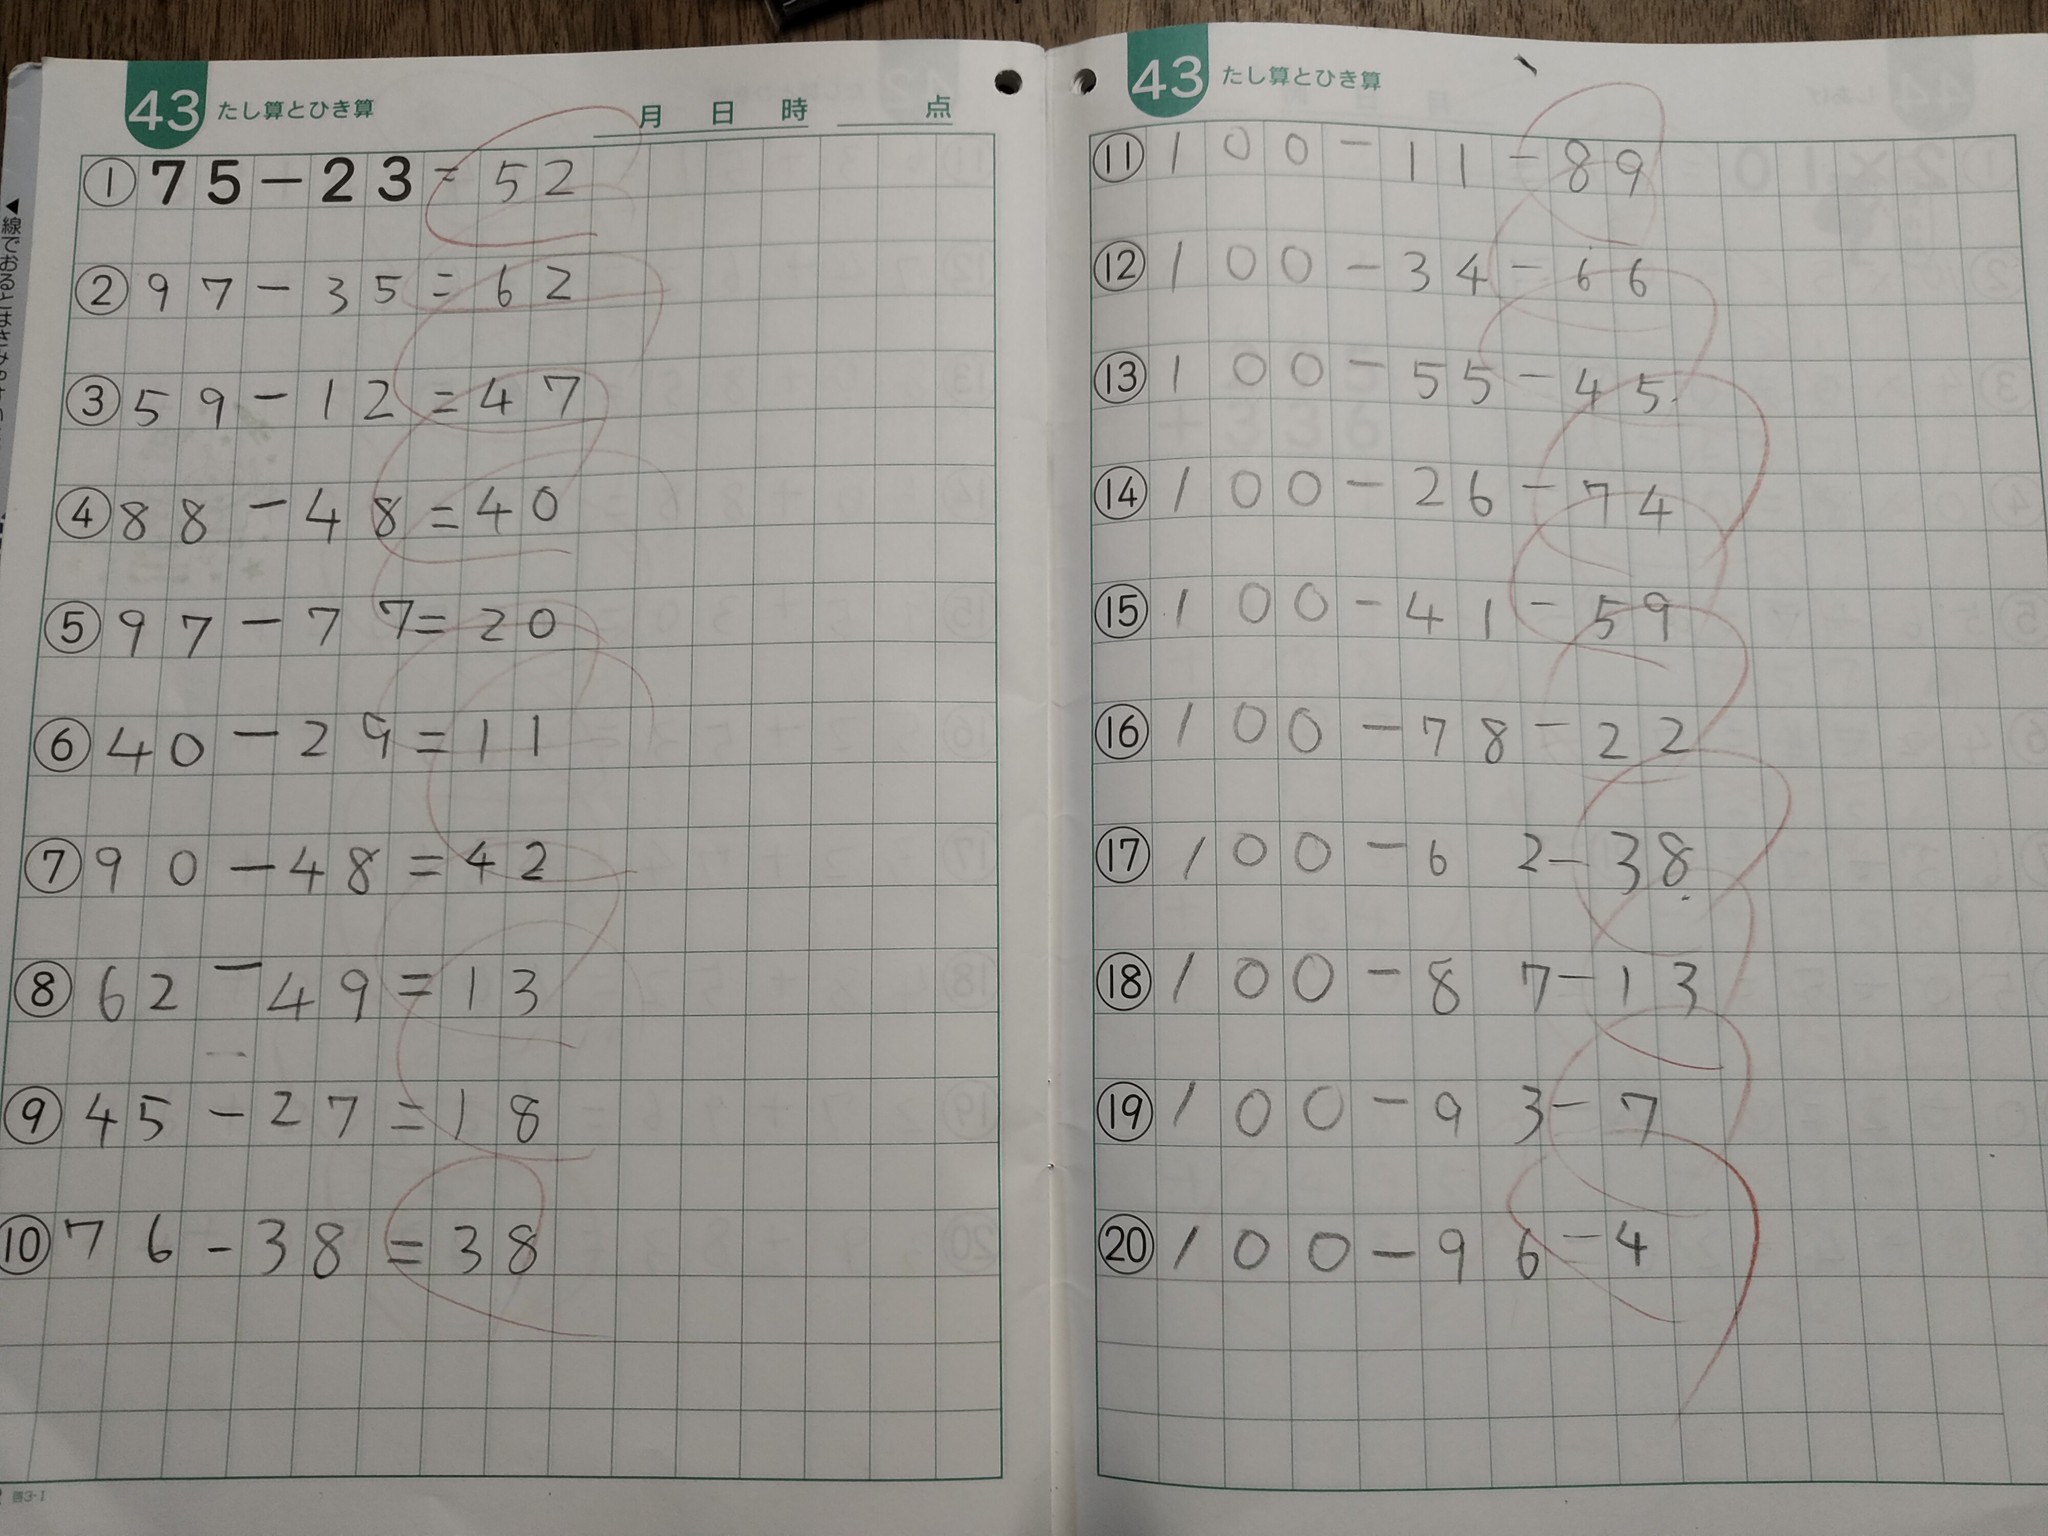 43 たし算とひき算 月 日 時 点
①75-23=52
②97-35=62
③59-12=47
④88-48=40
⑤97-77=20
⑥40-29=11
⑦90-48=42
⑧62-49=13
⑨45-27=18
⑩76-38=38
43 たし算とひき算
⑪100-11-89
⑫100-34-66
⑬100-55-45
⑭100-26-74
⑮100-41-59
⑯100-78-22
⑰100-62-38
⑱100-87-13
⑲100-93-7
⑳100-96-4